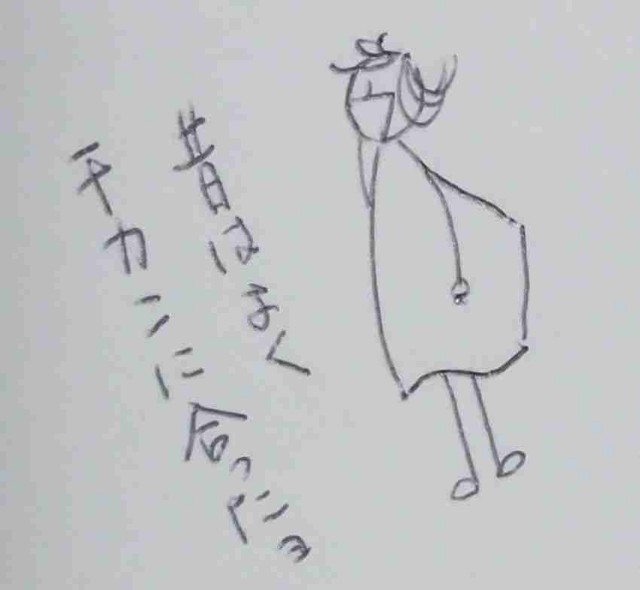 昔はよく
チカンに会ったヨ